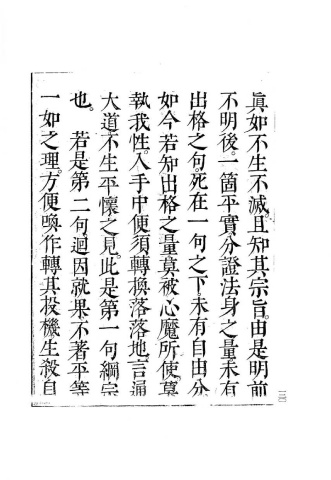 眞如不生不滅。且知其宗旨。由是明前
不明後。一箇平實分證法身之量。未有
出格之句。死在一句之下。未有自由分。
如今若知出格之量。莫被心魔所使。莫
執我性。入手中便須轉換落落地。言通
大道。不生平懷之見。此是第一句綱宗
也。　若是第二句。迴因就果。不著平等
一如之理。方便喚作轉其投機。生殺自
二